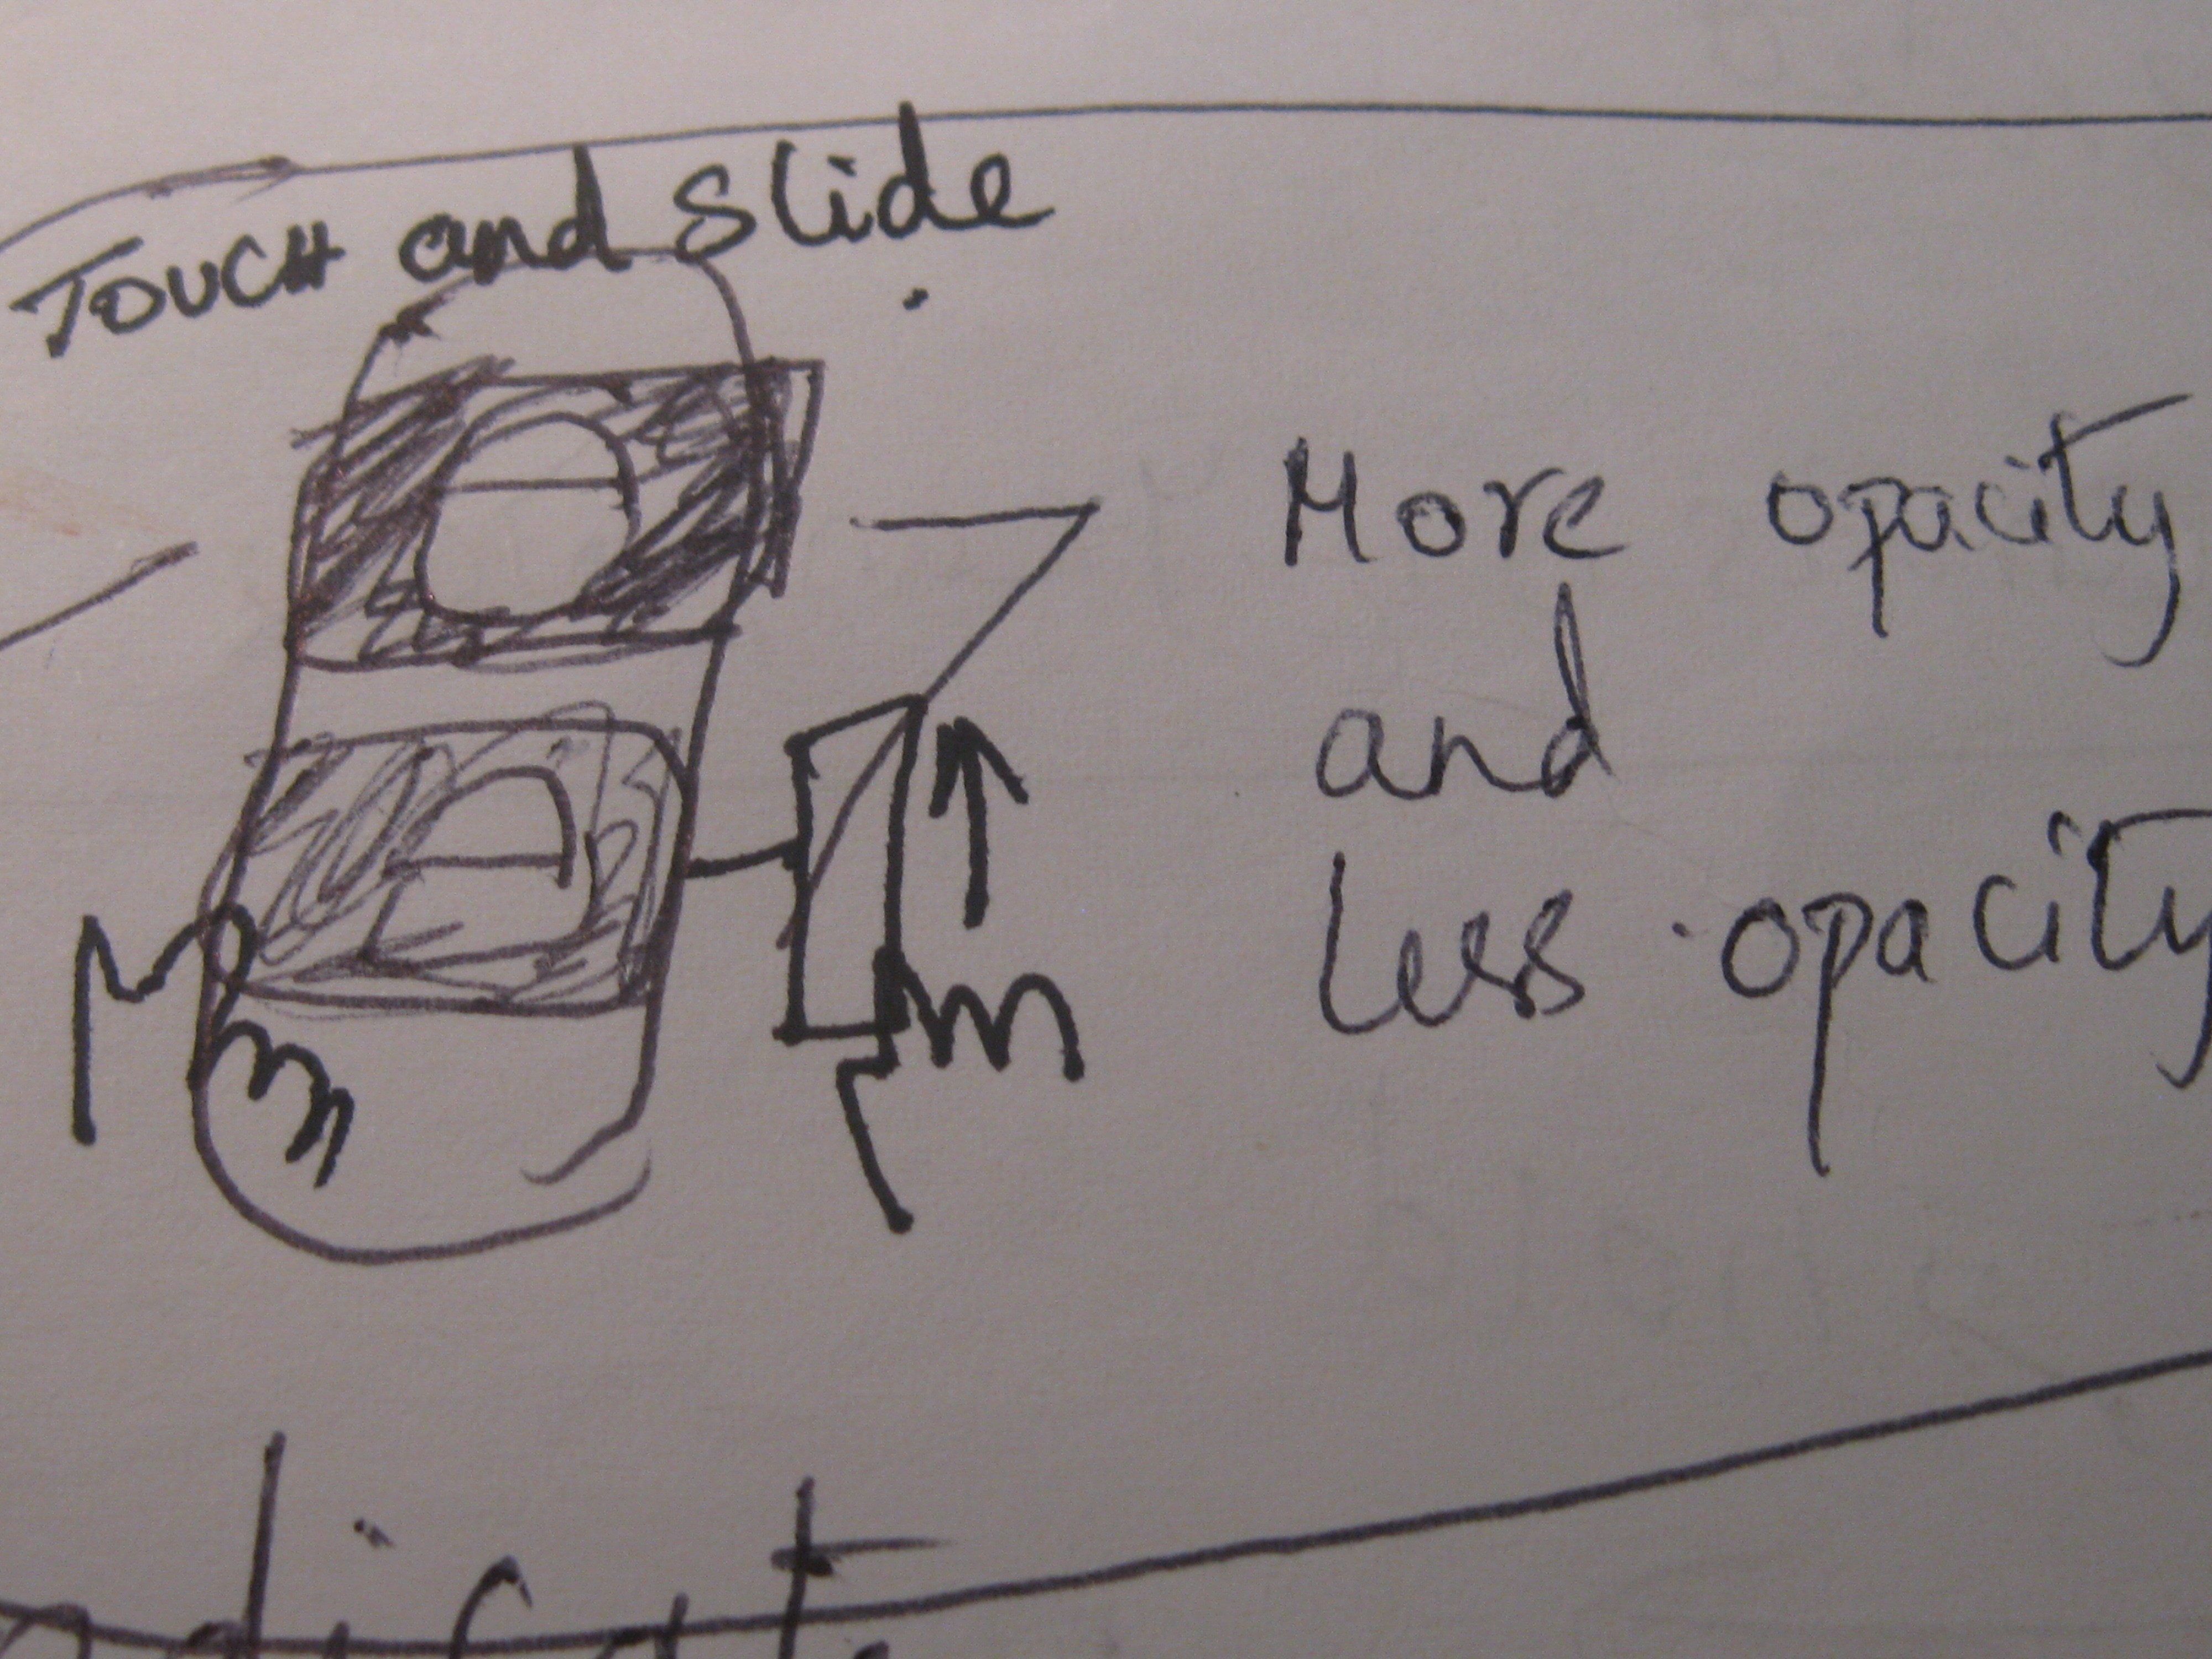 TOUCH and slide
More opacity
and
less opacity